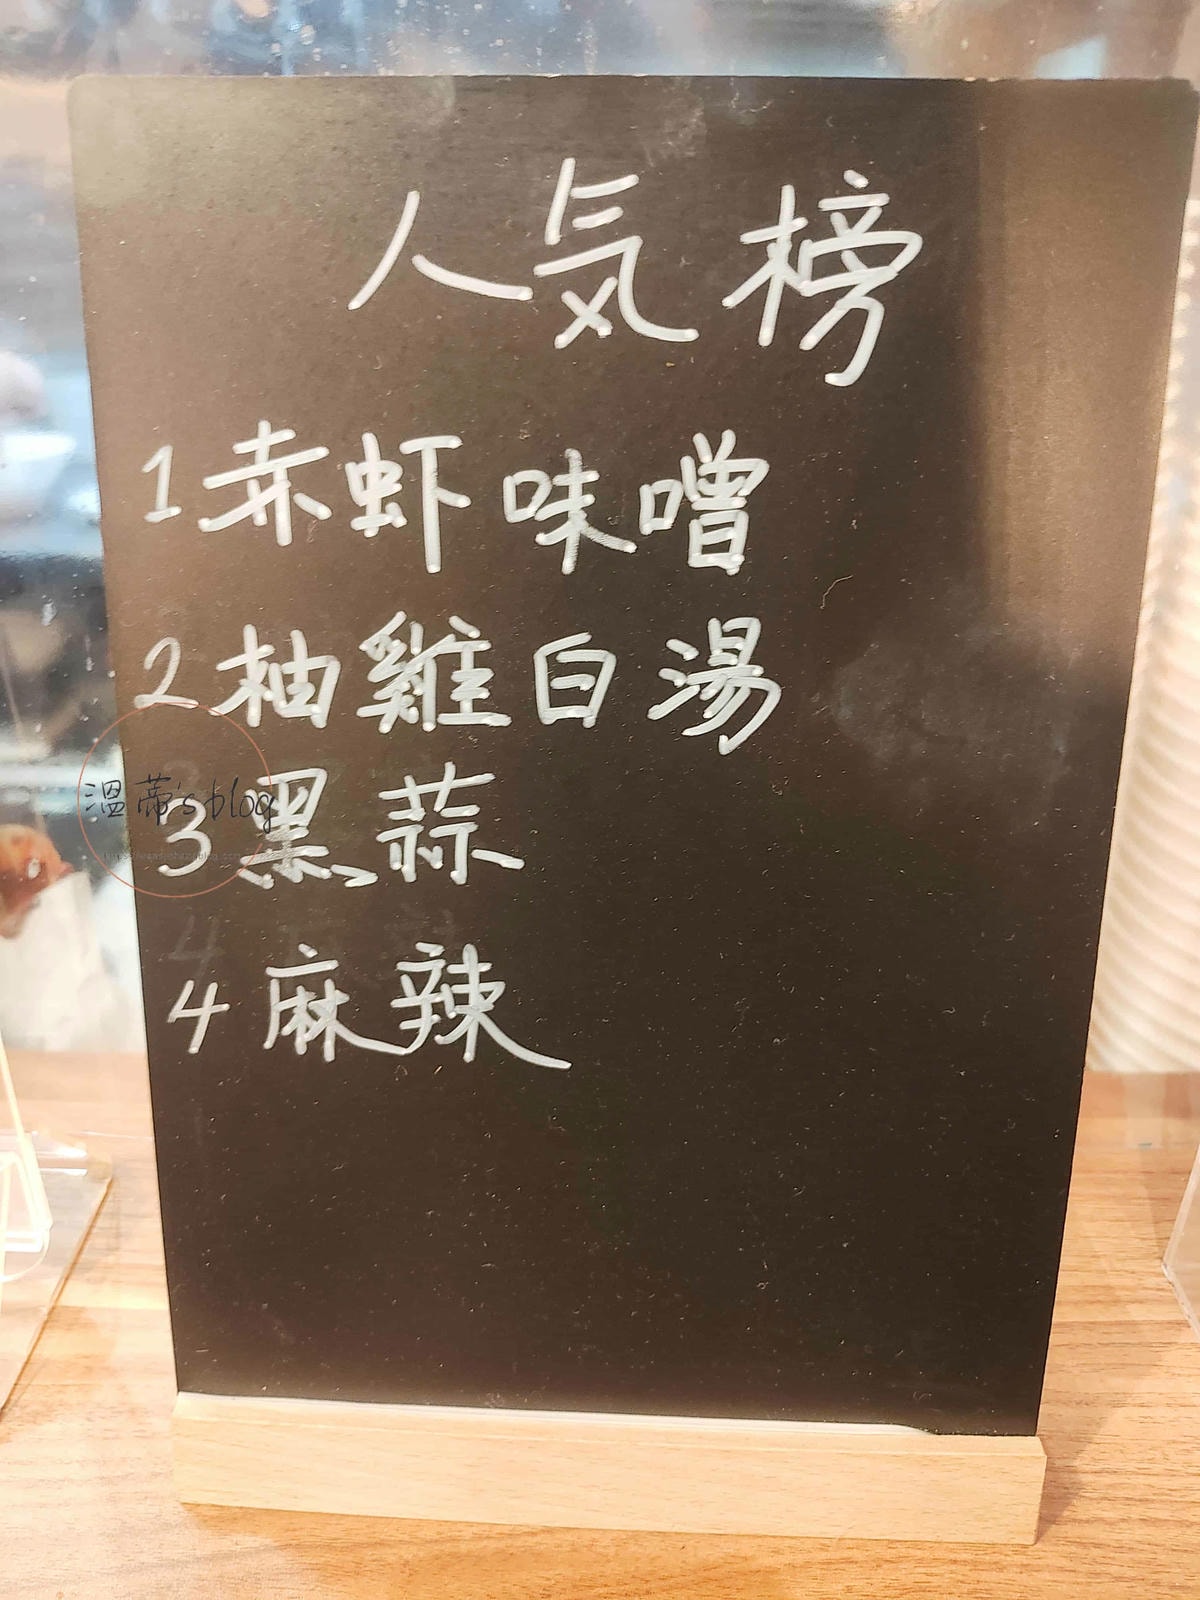 人気榜
1 赤虾味噌
2 柚雞白湯
3 黑蒜
4 麻辣
溫蒂's blog